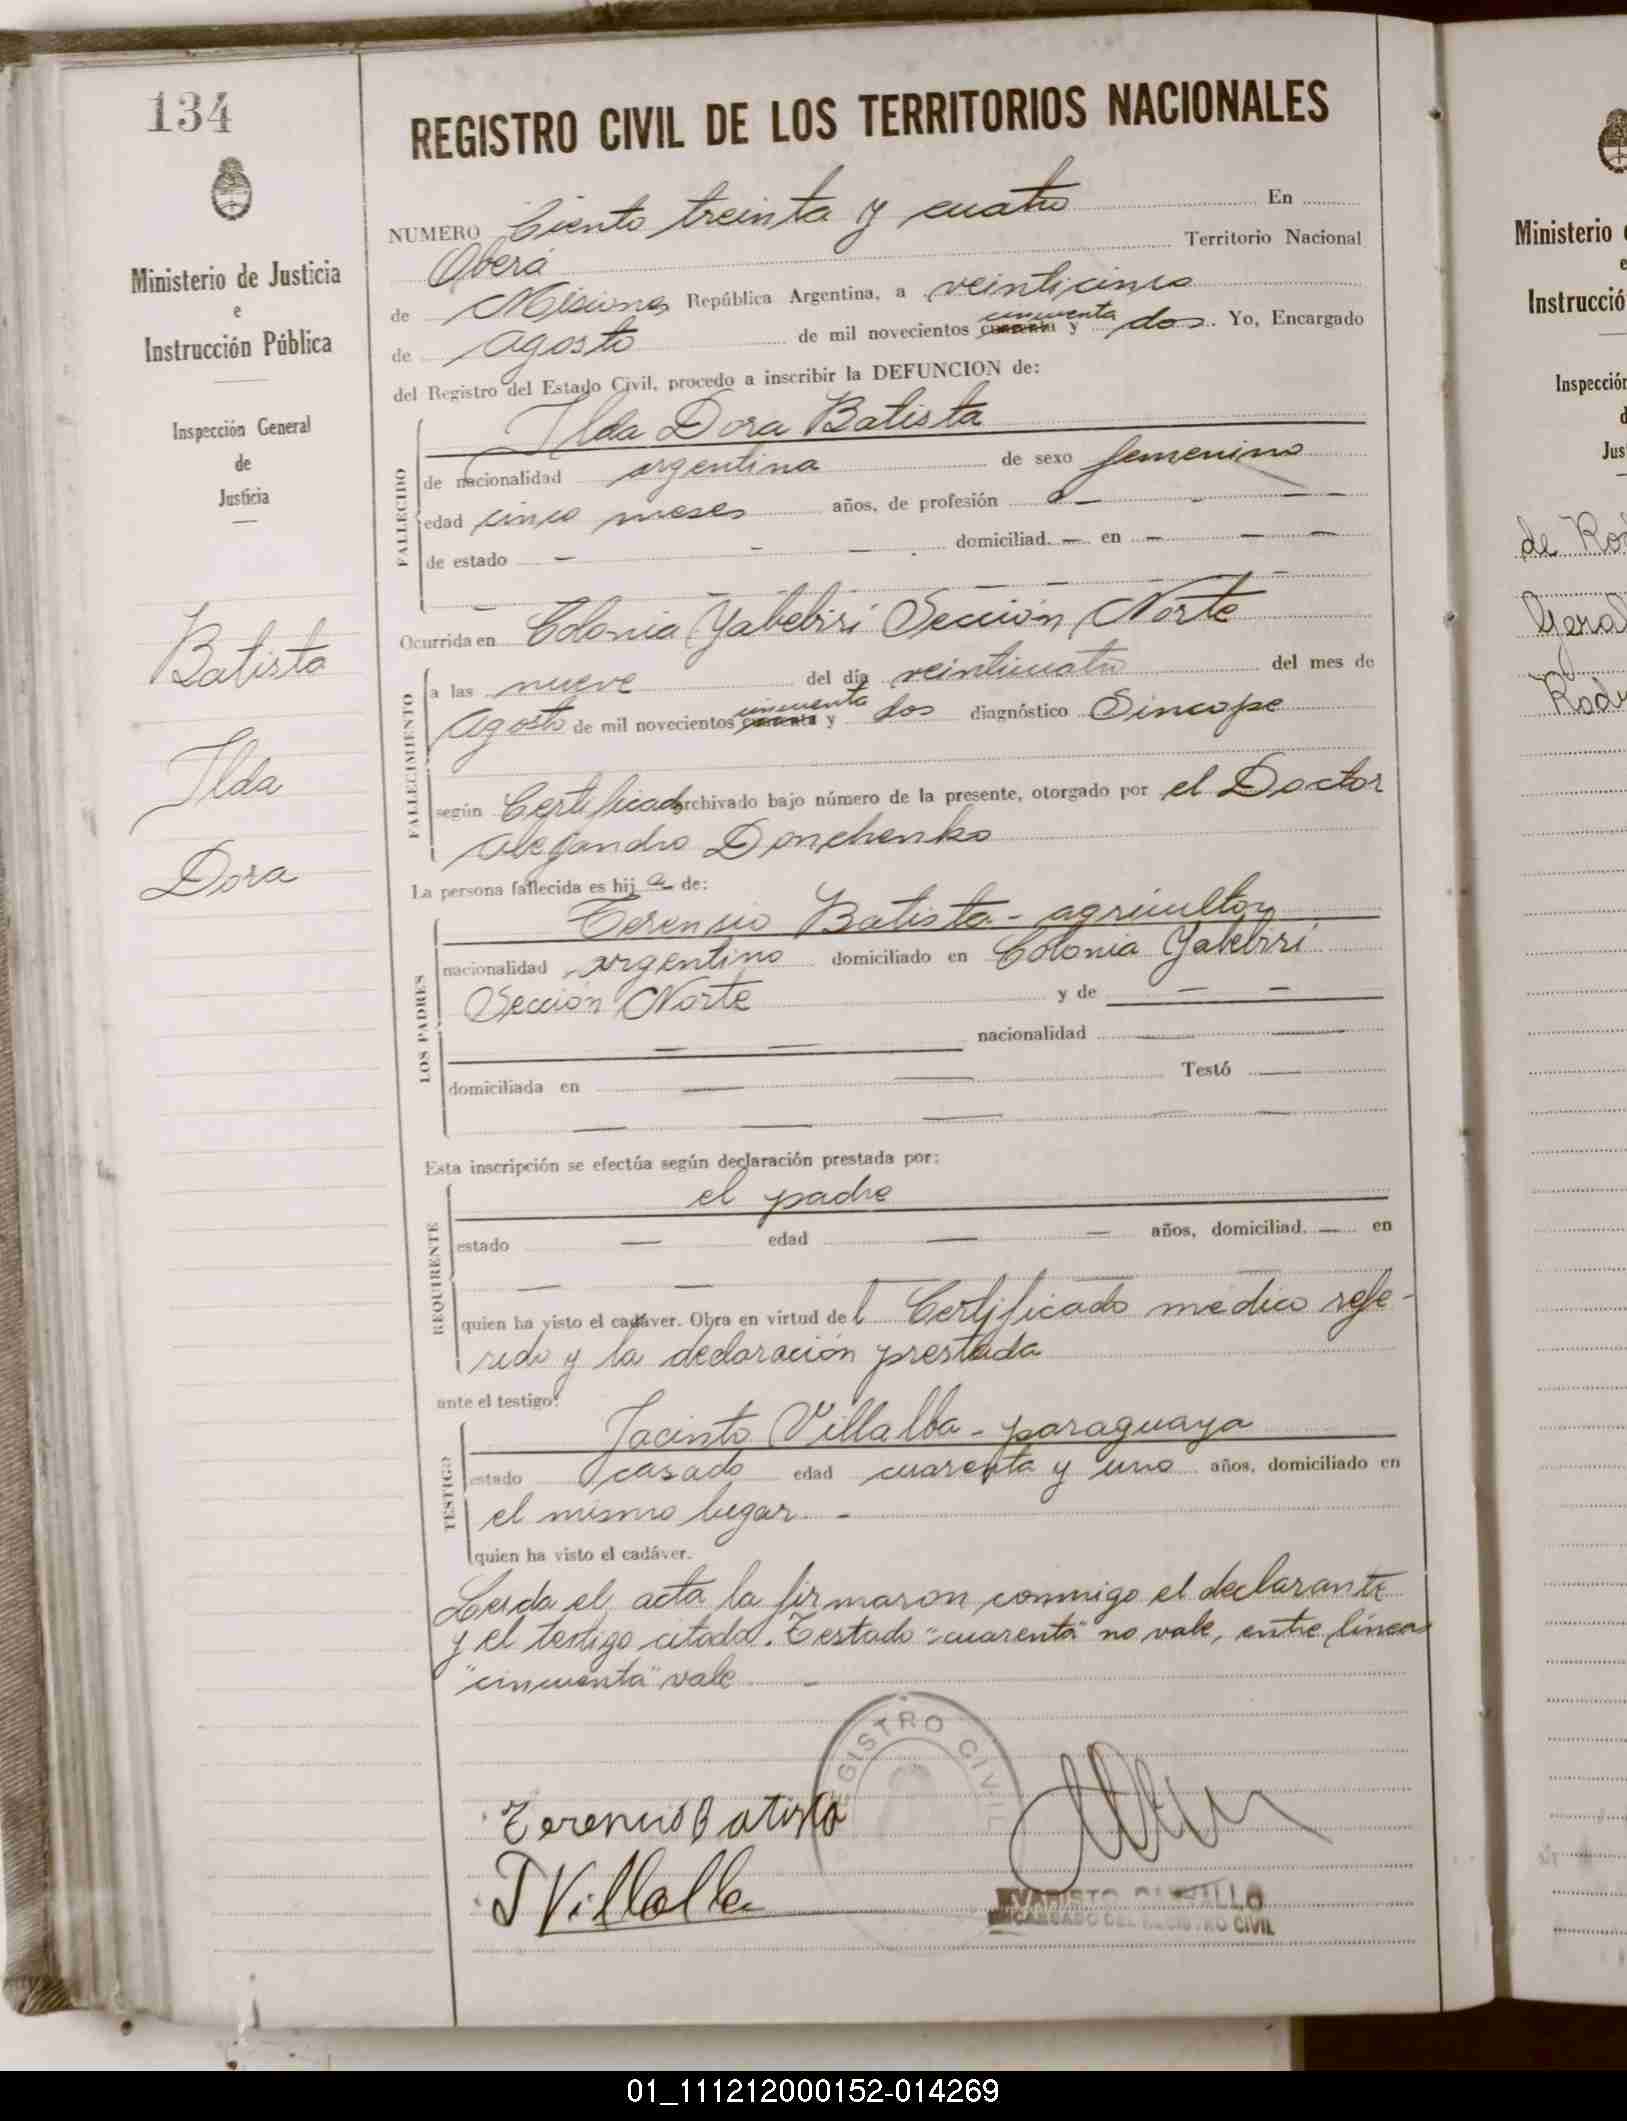 134
Ministerio de Justicia
e
Instrucción Pública
Inspección General
de
Justicia
Batista
Ilda
Dora
REGISTRO CIVIL DE LOS TERRITORIOS NACIONALES
NUMERO Ciento treinta y cuatro En
Oberá Territorio Nacional
de Misiones República Argentina, a veinticinco
de Agosto de mil novecientos cuarenta cincuenta y dos. Yo, Encargado
del Registro del Estado Civil, procedo a inscribir la DEFUNCION de:
FALLECIDO
Ilda Dora Batista
de nacionalidad argentina de sexo femenino
edad cinco meses años, de profesión —
de estado — domiciliad. — en —
Ocurrida en Colonia Yabebirí Sección Norte
FALLECIMIENTO
a las nueve del día veinticuatro del mes de
Agosto de mil novecientos cuarenta cincuenta y dos diagnóstico Síncope
según Certificado archivado bajo número de la presente, otorgado por el Doctor
Alejandro Donchenko
La persona fallecida es hija de:
LOS PADRES
Terensio Batista - agricultor
nacionalidad argentino domiciliado en Colonia Yabebirí
Sección Norte y de —
nacionalidad —
domiciliada en — Testó —
Esta inscripción se efectúa según declaración prestada por:
REQUIRENTE
el padre
estado — edad — años, domiciliad. — en
quien ha visto el cadáver. Obra en virtud del Certificado medico refe-
rido y la declaración prestada
ante el testigo:
TESTIGO
Jacinto Villalba - paraguayo
estado casado edad cuarenta y uno años, domiciliado en
el mismo lugar -
quien ha visto el cadáver.
Leida el acta la firmaron conmigo el declarante
y el testigo citado. Testado "cuarenta" no vale, entre líneas
"cincuenta" vale -
REGISTRO CIVIL
Terencio Batista
J Villalba
EVARISTO
ENCARGADO DEL REGISTRO CIVIL
Ministerio
e
Instrucció
Inspección
d
Jus
de Ro
Gera
Rodr
01_111212000152-014269